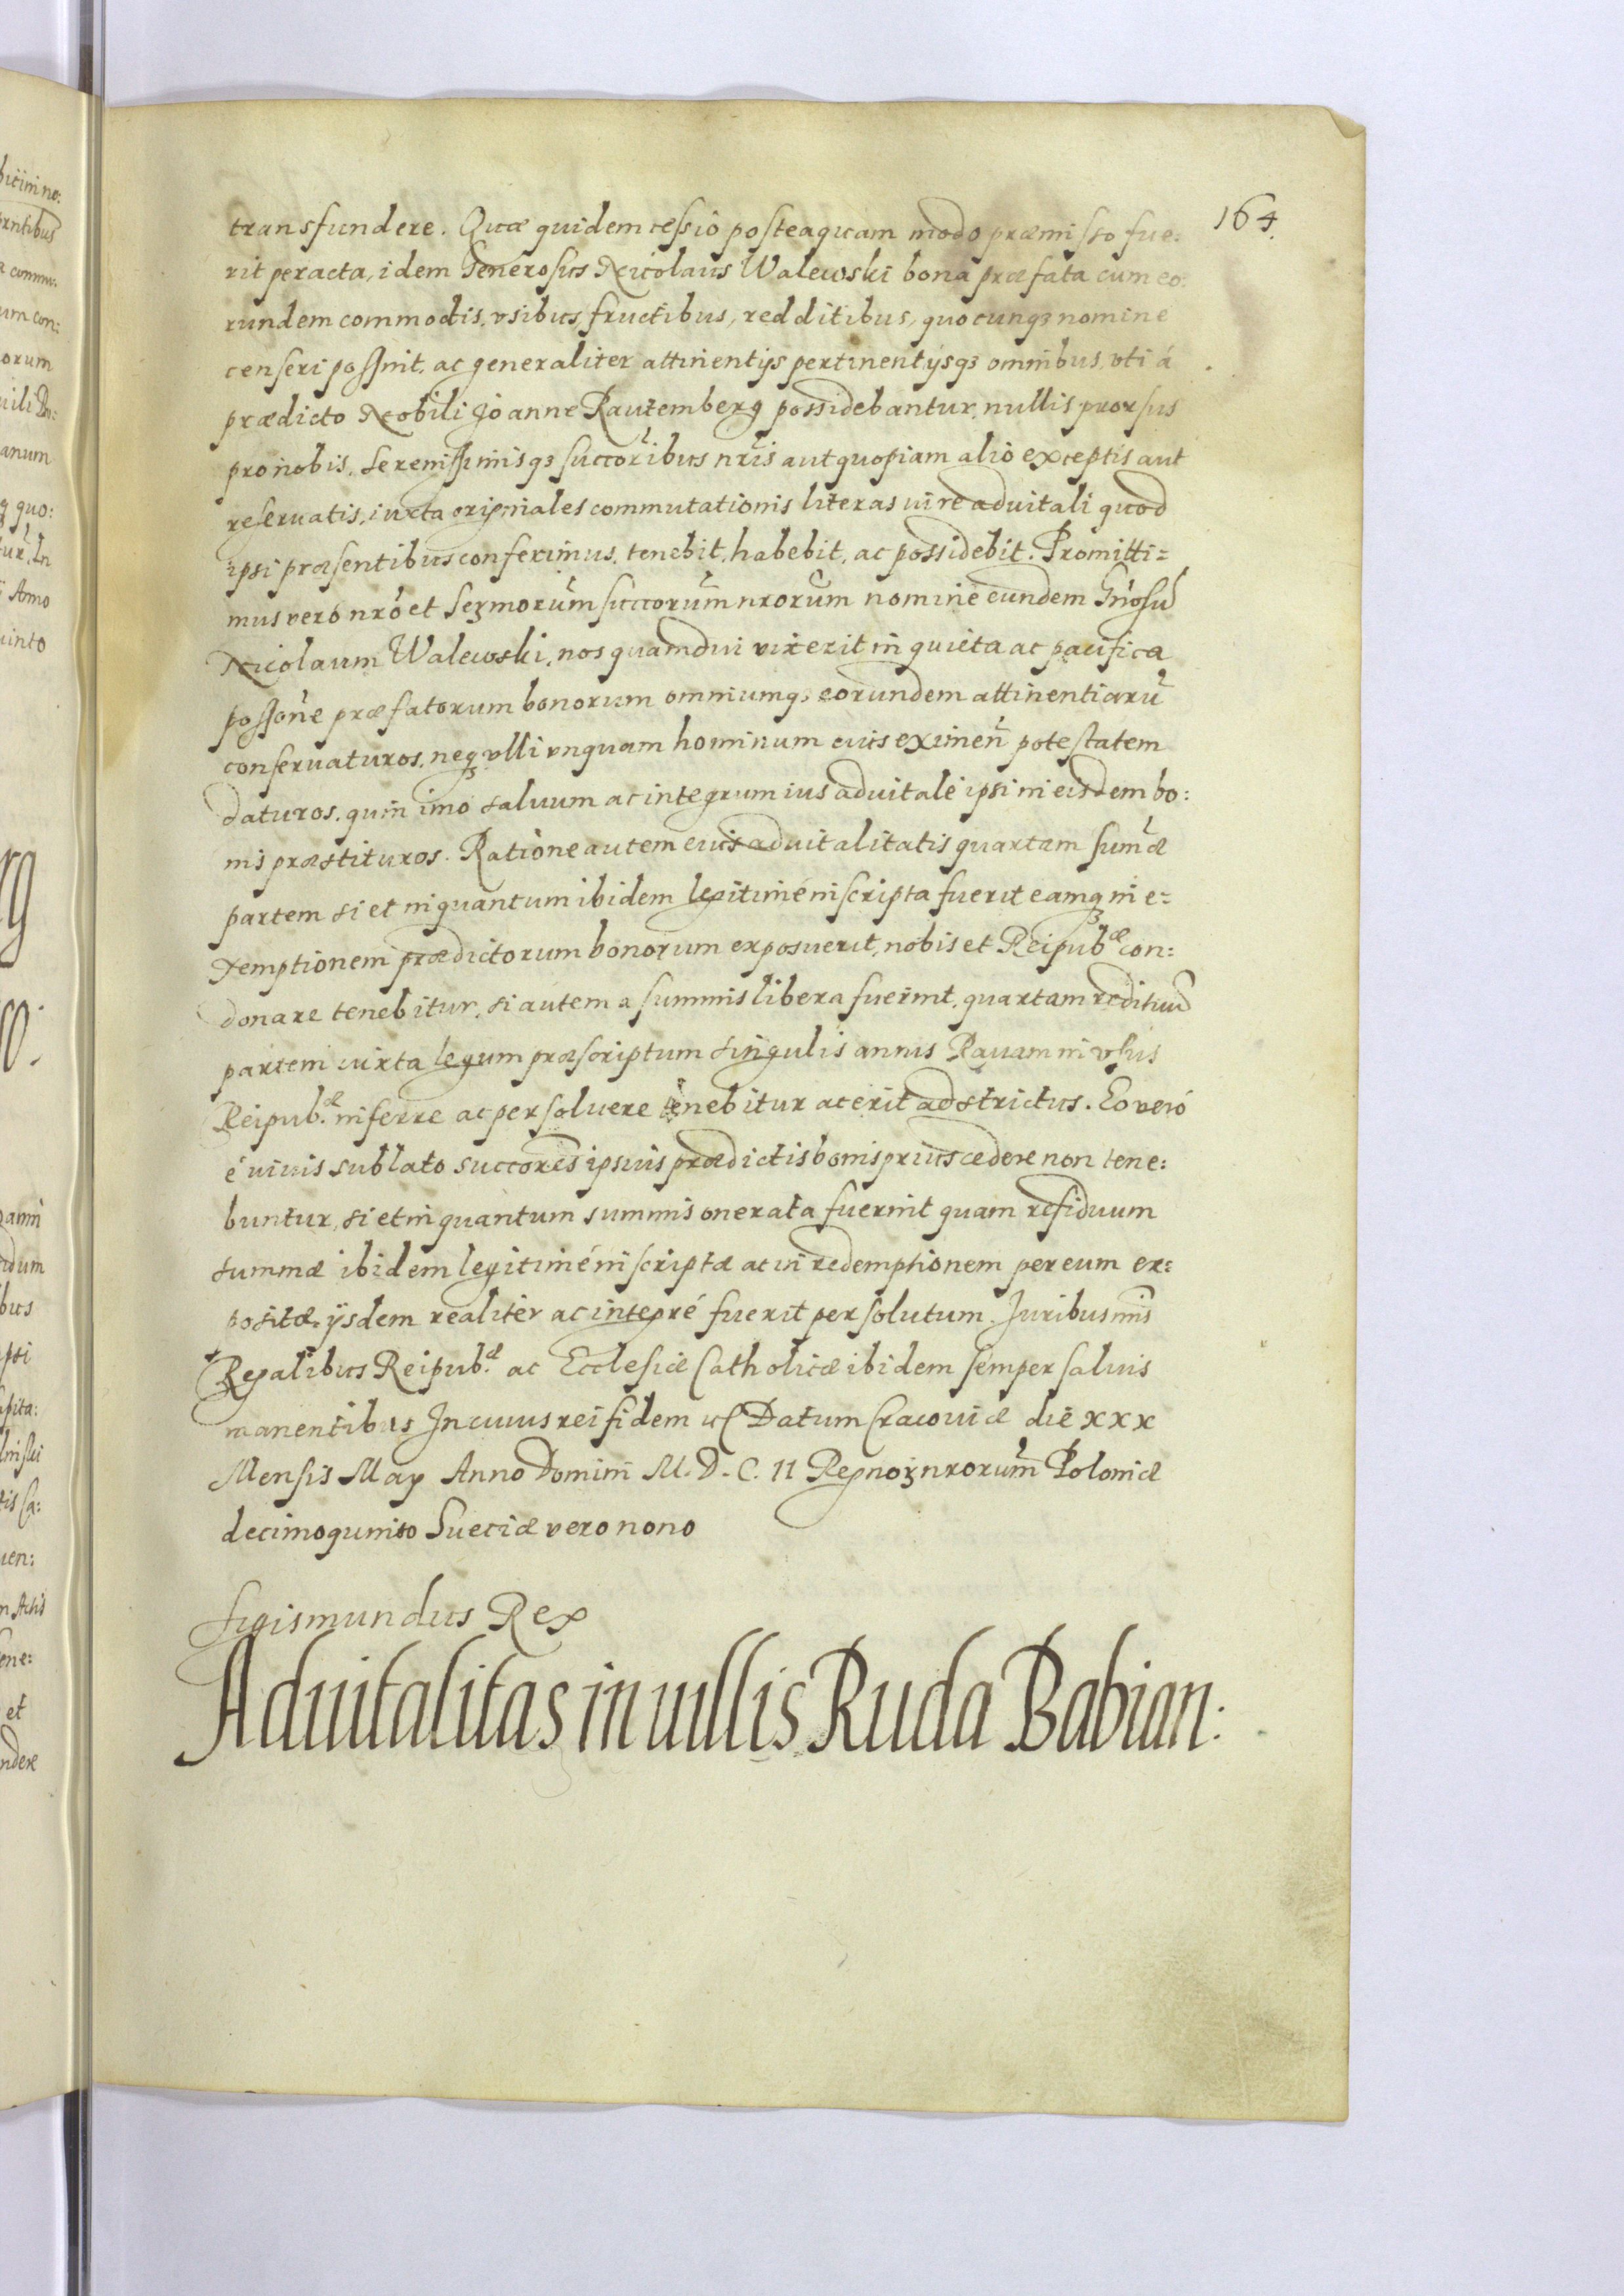 164.
transfundere. Quæ quidem cessio posteaquam modo præmisso fue:
rit peracta, idem Generosus Nicolaus Walewski bona præfata cum eo:
rundem commodis, vsibus, fructibus, redditibus, quocunqȝ nomine
censeri possint, ac generaliter attinentijs pertinentijsqȝ omnibus, vti á
prædicto Nobili Joanne Rautemberg possidebantur, nullis prorsus
pro nobis, serenissimisqȝ succoribus nris aut quopiam alio exceptis aut
reseruatis, iuxta originales commutationis literas iure aduitali quod
ipsi præsentibus conferimus, tenebit, habebit, ac possidebit. Promitti=
mus vero nro et Sermorum succorum nrorum nomine eundem Gnosu
Nicolaum Walewski, nos quamdiu vixerit in quieta ac pacifica
possone præfatorum bonorum omniumqȝ eorundem attinentiaru
conseruaturos, neqȝ vlli vnquam hominum eius eximen potestatem
daturos, quin imo saluum ac integrum ius aduitale ipsi in eisdem bo:
nis præstituros. Ratione autem eius aduitalitatis quartam sumæ
partem si et in quantum ibidem legitimé inscripta fuerit eamqȝ in e=
xemptionem prædictorum bonorum exposuerit, nobis et Reipubæ con:
donare tenebitur, si autem a summis libera fuerint, quartam redituu
partem iuxta legum præscriptum singulis annis Rauam in vsus
Reipub.æ inferre ac persoluere tenebitur ac erit adstrictus. Eo veró
é viuis sublato succores ipsius prædictis bonis prius cedere non tene:
buntur, si et in quantum summis onerata fuerint quam residuum
summæ ibidem legitimé inscriptæ ac in redemptionem per eum ex:
positæ, ijsdem realiter ac integré fuerit persolutum. Juribus nris
Regalibus Reipub.æ ac Ecclesiæ Catholicæ ibidem semper saluis
manentibus In cuius rei fidem Datum Cracouiæ die xxx
Mensis May Anno Domini M.D.C.II Regnoȝ nrorum Poloniæ
decimoquinto Sueciæ vero nono
Sigismundus Rex
Aduitalitas in uillis Ruda Babian: